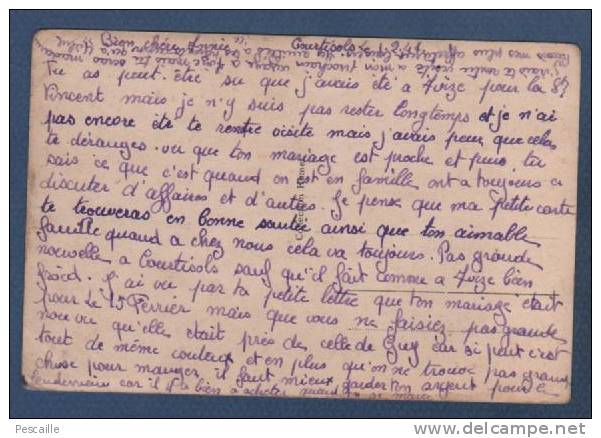 Bien chère Annie Courtisols le 1.2.41
Tu as peut-être su que j'avais été à Vvize pour la St
Vincent mais je n'y suis pas rester longtemps et je n'ai
pas encore été te rendre visite mais j'avais peur que cela
te déranges. vu que ton mariage est proche et puis tu
sais ce que c'est quand on est en famille, ont a toujours a
discuter d'affaires et d'autres. Je pense que ma petite carte
te trouveras en bonne santée ainsi que ton aimable
famille quand a chez nous cela va toujours. Pas grande
nouvelle a Courtisols sauf qu'il fait comme a bien
froid. j ai vu par ta petite lettre que ton mariage était
pour le 15 Fevrier mais que vous ne faisiez pas grande
noce vu qu'elle était près de celle de Guy car si peut c'est
tout de même couteux et en plus qu'on ne trouve pas grand
chose pour manger il faut mieux garder ton argent pour le
lendemain car il y a bien a acheter quand on se marie
Collection
Pescaille
www.delcampe.net